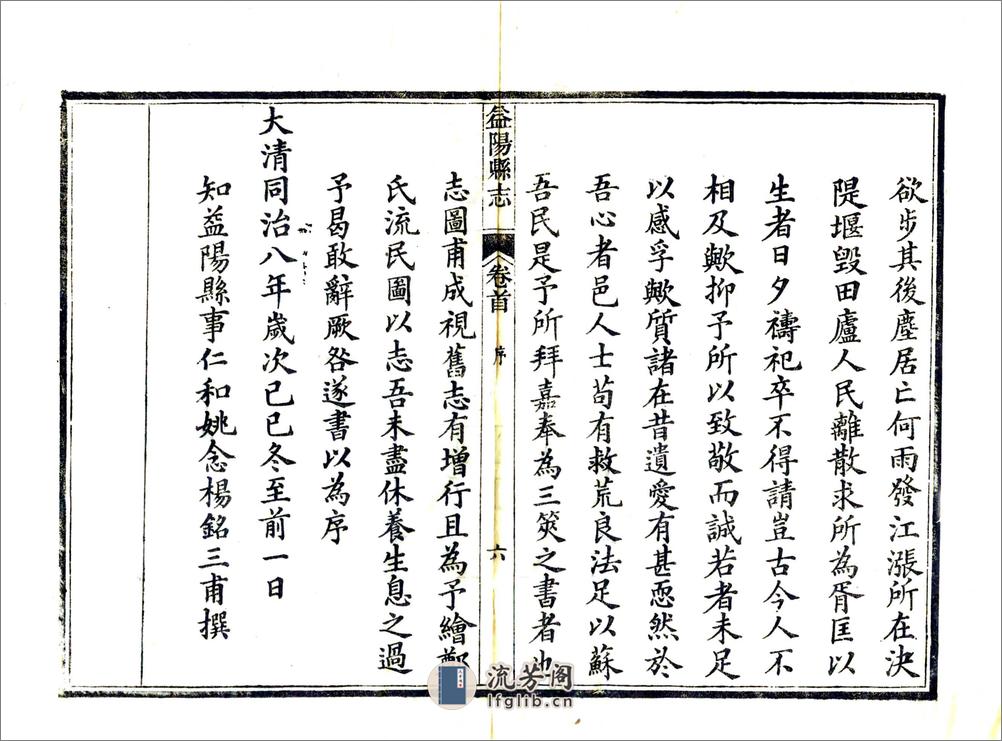 欲步其後塵居亡何雨發江漲所在決
隄堰毀田廬人民離散求所為胥匡以
生者日夕禱祀卒不得請豈古今人不
相及歟抑予所以致敬而誠若者未足
以感孚歟質諸在昔遺愛有甚恧然於
吾心者邑人士苟有救荒良法足以蘇
吾民是予所拜嘉奉為三筴之書者也
益陽縣志
卷首
序
六
志圖甫成視舊志有增行且為予繪鄭
氏流民圖以志吾未盡休養生息之過
予曷敢辭厥咎遂書以為序
大清同治八年歲次己巳冬至前一日
知益陽縣事仁和姚念楊銘三甫撰
流芳閣
lfglib.cn